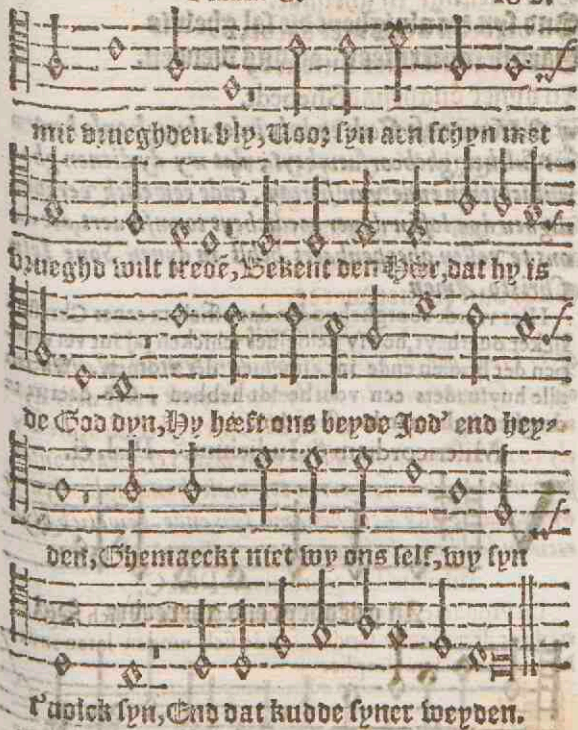 mit vrueghden bly, Voor syn aen schyn met
vrueghd wilt tredē, Bekent den Hēer, dat hy is
de God dyn, Hy hēeft ons beyde Jod' end hey-
den, Ghemaeckt niet wy ons self, wy syn
t'volck syn, End dat kudde syner weyden.